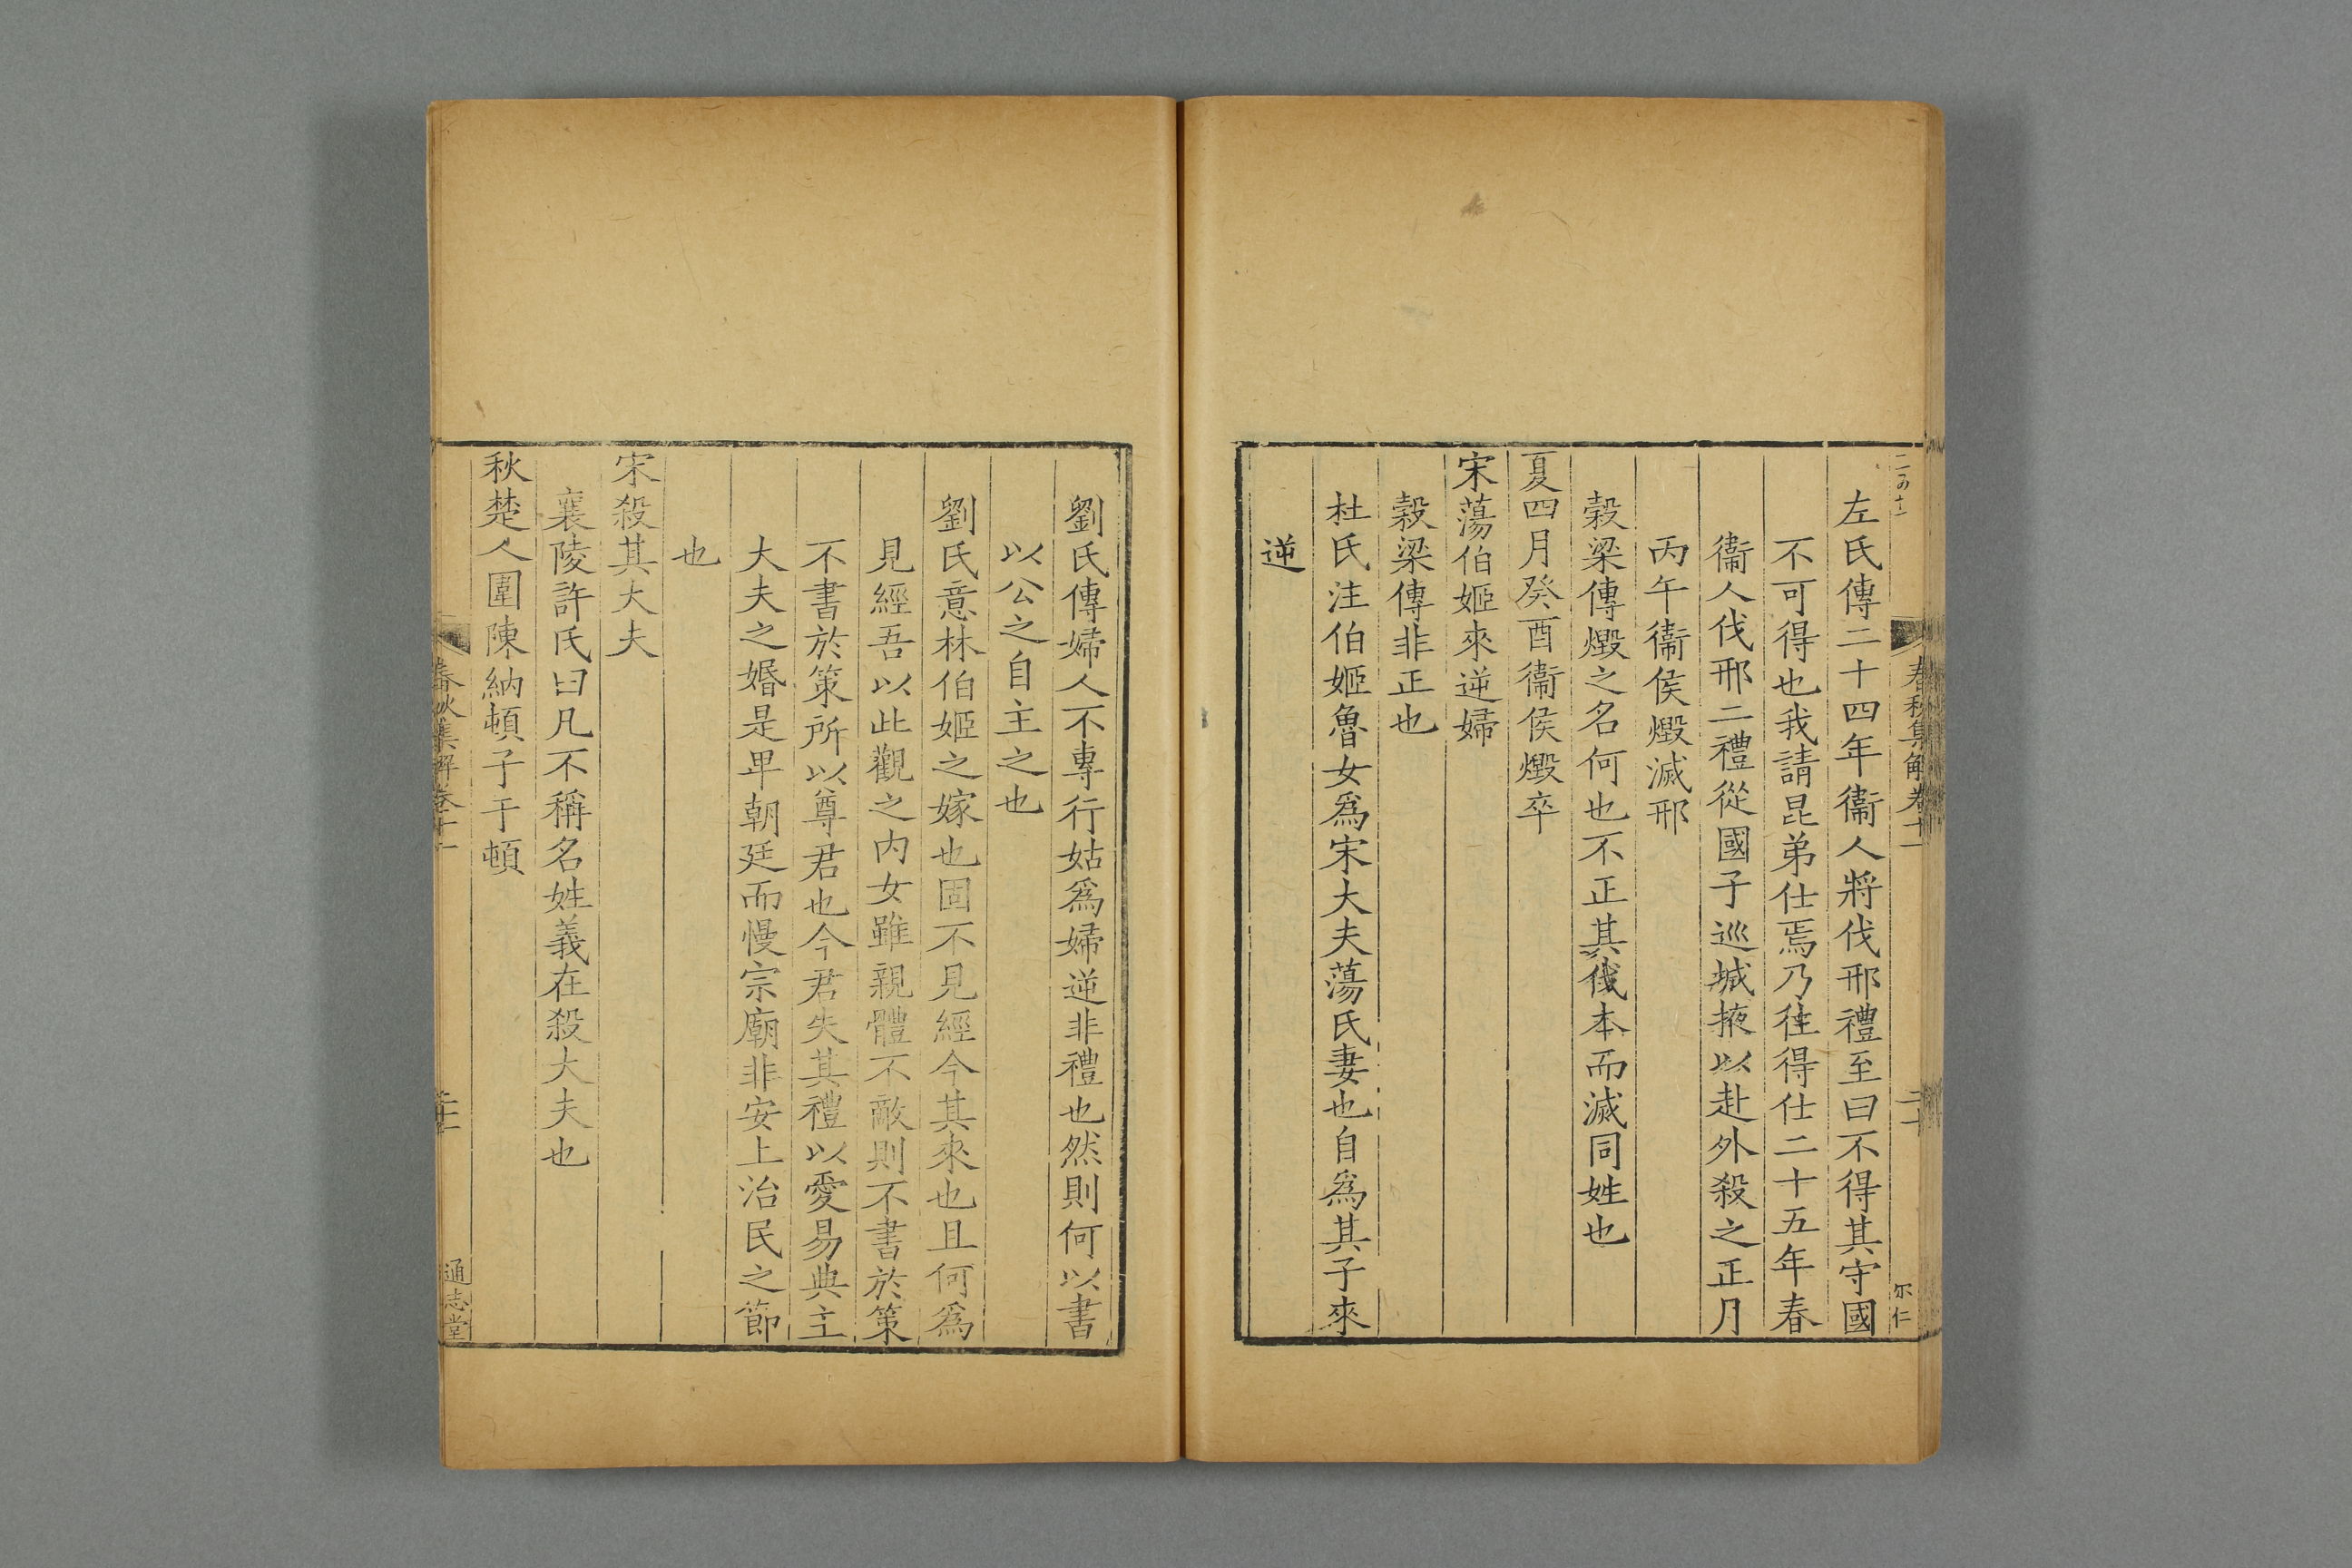 春秋集解卷十一
二十
尔仁
左氏傳二十四年衞人將伐邢禮至曰不得其守國
不可得也我請昆弟仕焉乃徃得仕二十五年春
衞人伐邢二禮從國子巡城掖以赴外殺之正月
丙午衞侯燬滅邢
穀梁傳燬之名何也不正其伐本而滅同姓也
夏四月癸酉衞侯燬卒
宋蕩伯姬來逆婦
穀梁傳非正也
杜氏注伯姬魯女爲宋大夫蕩氏妻也自爲其子來
逆
劉氏傳婦人不專行姑爲婦逆非禮也然則何以書
以公之自主之也
劉氏意林伯姬之嫁也固不見經今其來也且何爲
見經吾以此觀之内女雖親體不敵則不書於策
不書於策所以尊君也今君失其禮以愛易典主
大夫之婚是卑朝廷而慢宗廟非安上治民之節
也
宋殺其大夫
襄陵許氏曰凡不稱名姓義在殺大夫也
秋楚人圍陳納頓子于頓
春秋集解卷十一
通志堂